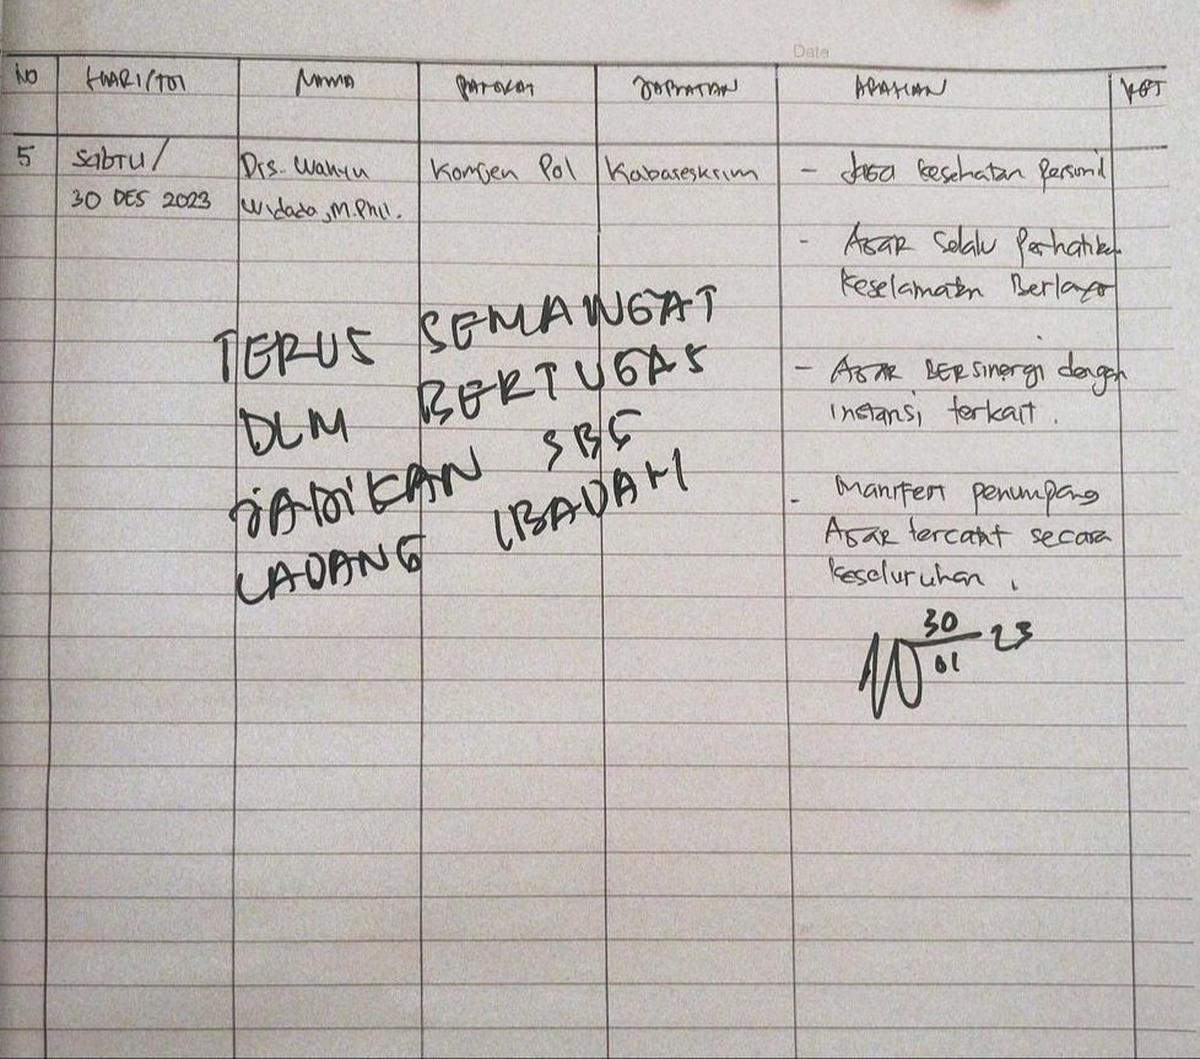 Date
NO HARI/TGL NAMA PANGKAT JABATAN ARAHAN KET
5 Sabtu/ Drs. Wahyu Komjen Pol Kabareskrim - Jaga Kesehatan Personil
30 DES 2023 Widada, M.Phil.
- AGAR Selalu Perhatikan
Keselamatan Berlayar
TERUS SEMANGAT
DLM BERTUGAS
JADIKAN SBG
LADANG IBADAH
- AGAR BERSinergi dengan
instansi terkait.
- Manifest penumpang
AGAR tercatat secara
keseluruhan.
30 23